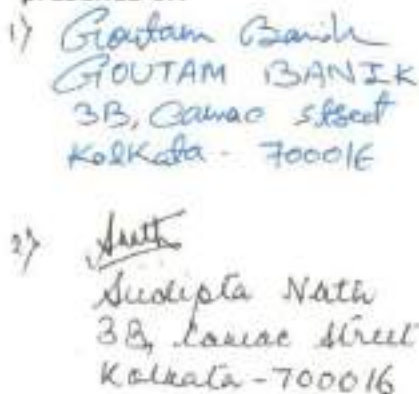 1) Goutam Banik
GOUTAM BANIK
3B, Camac Street
Kolkata - 700016
2)
Sudipta Nath
3B, Camac Street
Kolkata - 700016